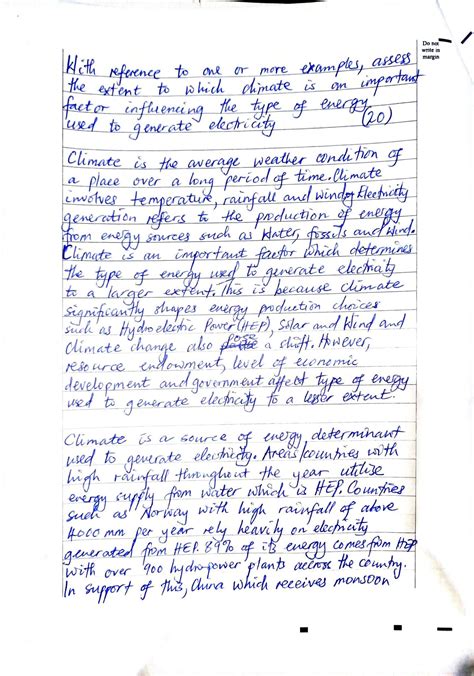 Do not
write in
margin
With reference to one or more examples, assess
the extent to which climate is an important
factor influencing the type of energy
used to generate electricity (20)
Climate is the average weather condition of
a place over a long period of time. Climate
involves temperature, rainfall and wind. Electricity
generation refers to the production of energy
from energy sources such as Water, fossils and Wind.
Climate is an important factor which determines
the type of energy used to generate electricity
to a larger extent. This is because climate
significantly shapes energy production choices
such as Hydroelectric Power (HEP), Solar and Wind and
Climate change also pose a shift. However,
resource endowment, level of economic
development and government affect type of energy
used to generate electricity to a lesser extent.
Climate is a source of energy determinant
used to generate electricity. Areas/countries with
high rainfall throughout the year utilise
energy supply from water which is HEP. Countries
such as Norway with high rainfall of above
4000 mm per year rely heavily on electricity
generated from HEP. 89% of its energy comes from HEP
with over 900 hydropower plants accross the country.
In support of this, China which receives monsoon